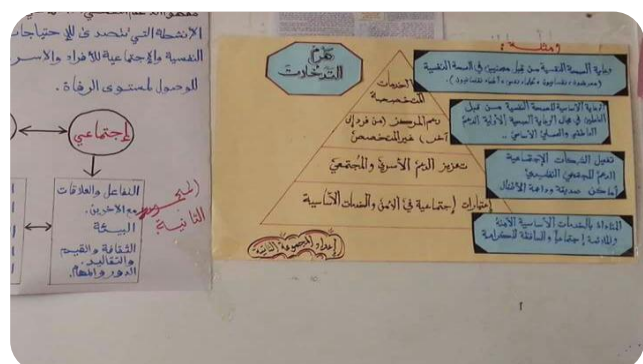 الدعم
الأنشطة التي تتصدى للإحتياجات
النفسية والإجتماعية للأفراد والأسر
للوصول لمستوى الرفاة .
إجتماعي
التفاعل والعلاقات
مع الآخرين .
البيئة
الثقافة والقيم
والتقاليد .
الدور والمهام .
المجموعة
الثانية
هرم
التدخلات
الخدمات
المتخصصة
دعم المركز (من فرد إلى
آخر) غير المتخصص
تعزيز الدعم الأسري والمجتمعي
إعتبارات إجتماعية في الأمن والخدمات الأساسية
إعداد المجموعة الثانية
أمثلة :
رعاية الصحة النفسية من قبل مختصين في الصحة النفسية
الرعاية الأساسية للصحة النفسية من قبل
العاملين في مجال الرعاية الصحية الأولية الدعم
العاطفي والعملي الأساسي ..
تفعيل الشبكات الإجتماعية
الدعم المجتمعي التقليدي
أماكن صديقة وداعمة للأطفال
المناداة بالخدمات الأساسية الآمنة
والملائمة إجتماعياً والحافظة للكرامة